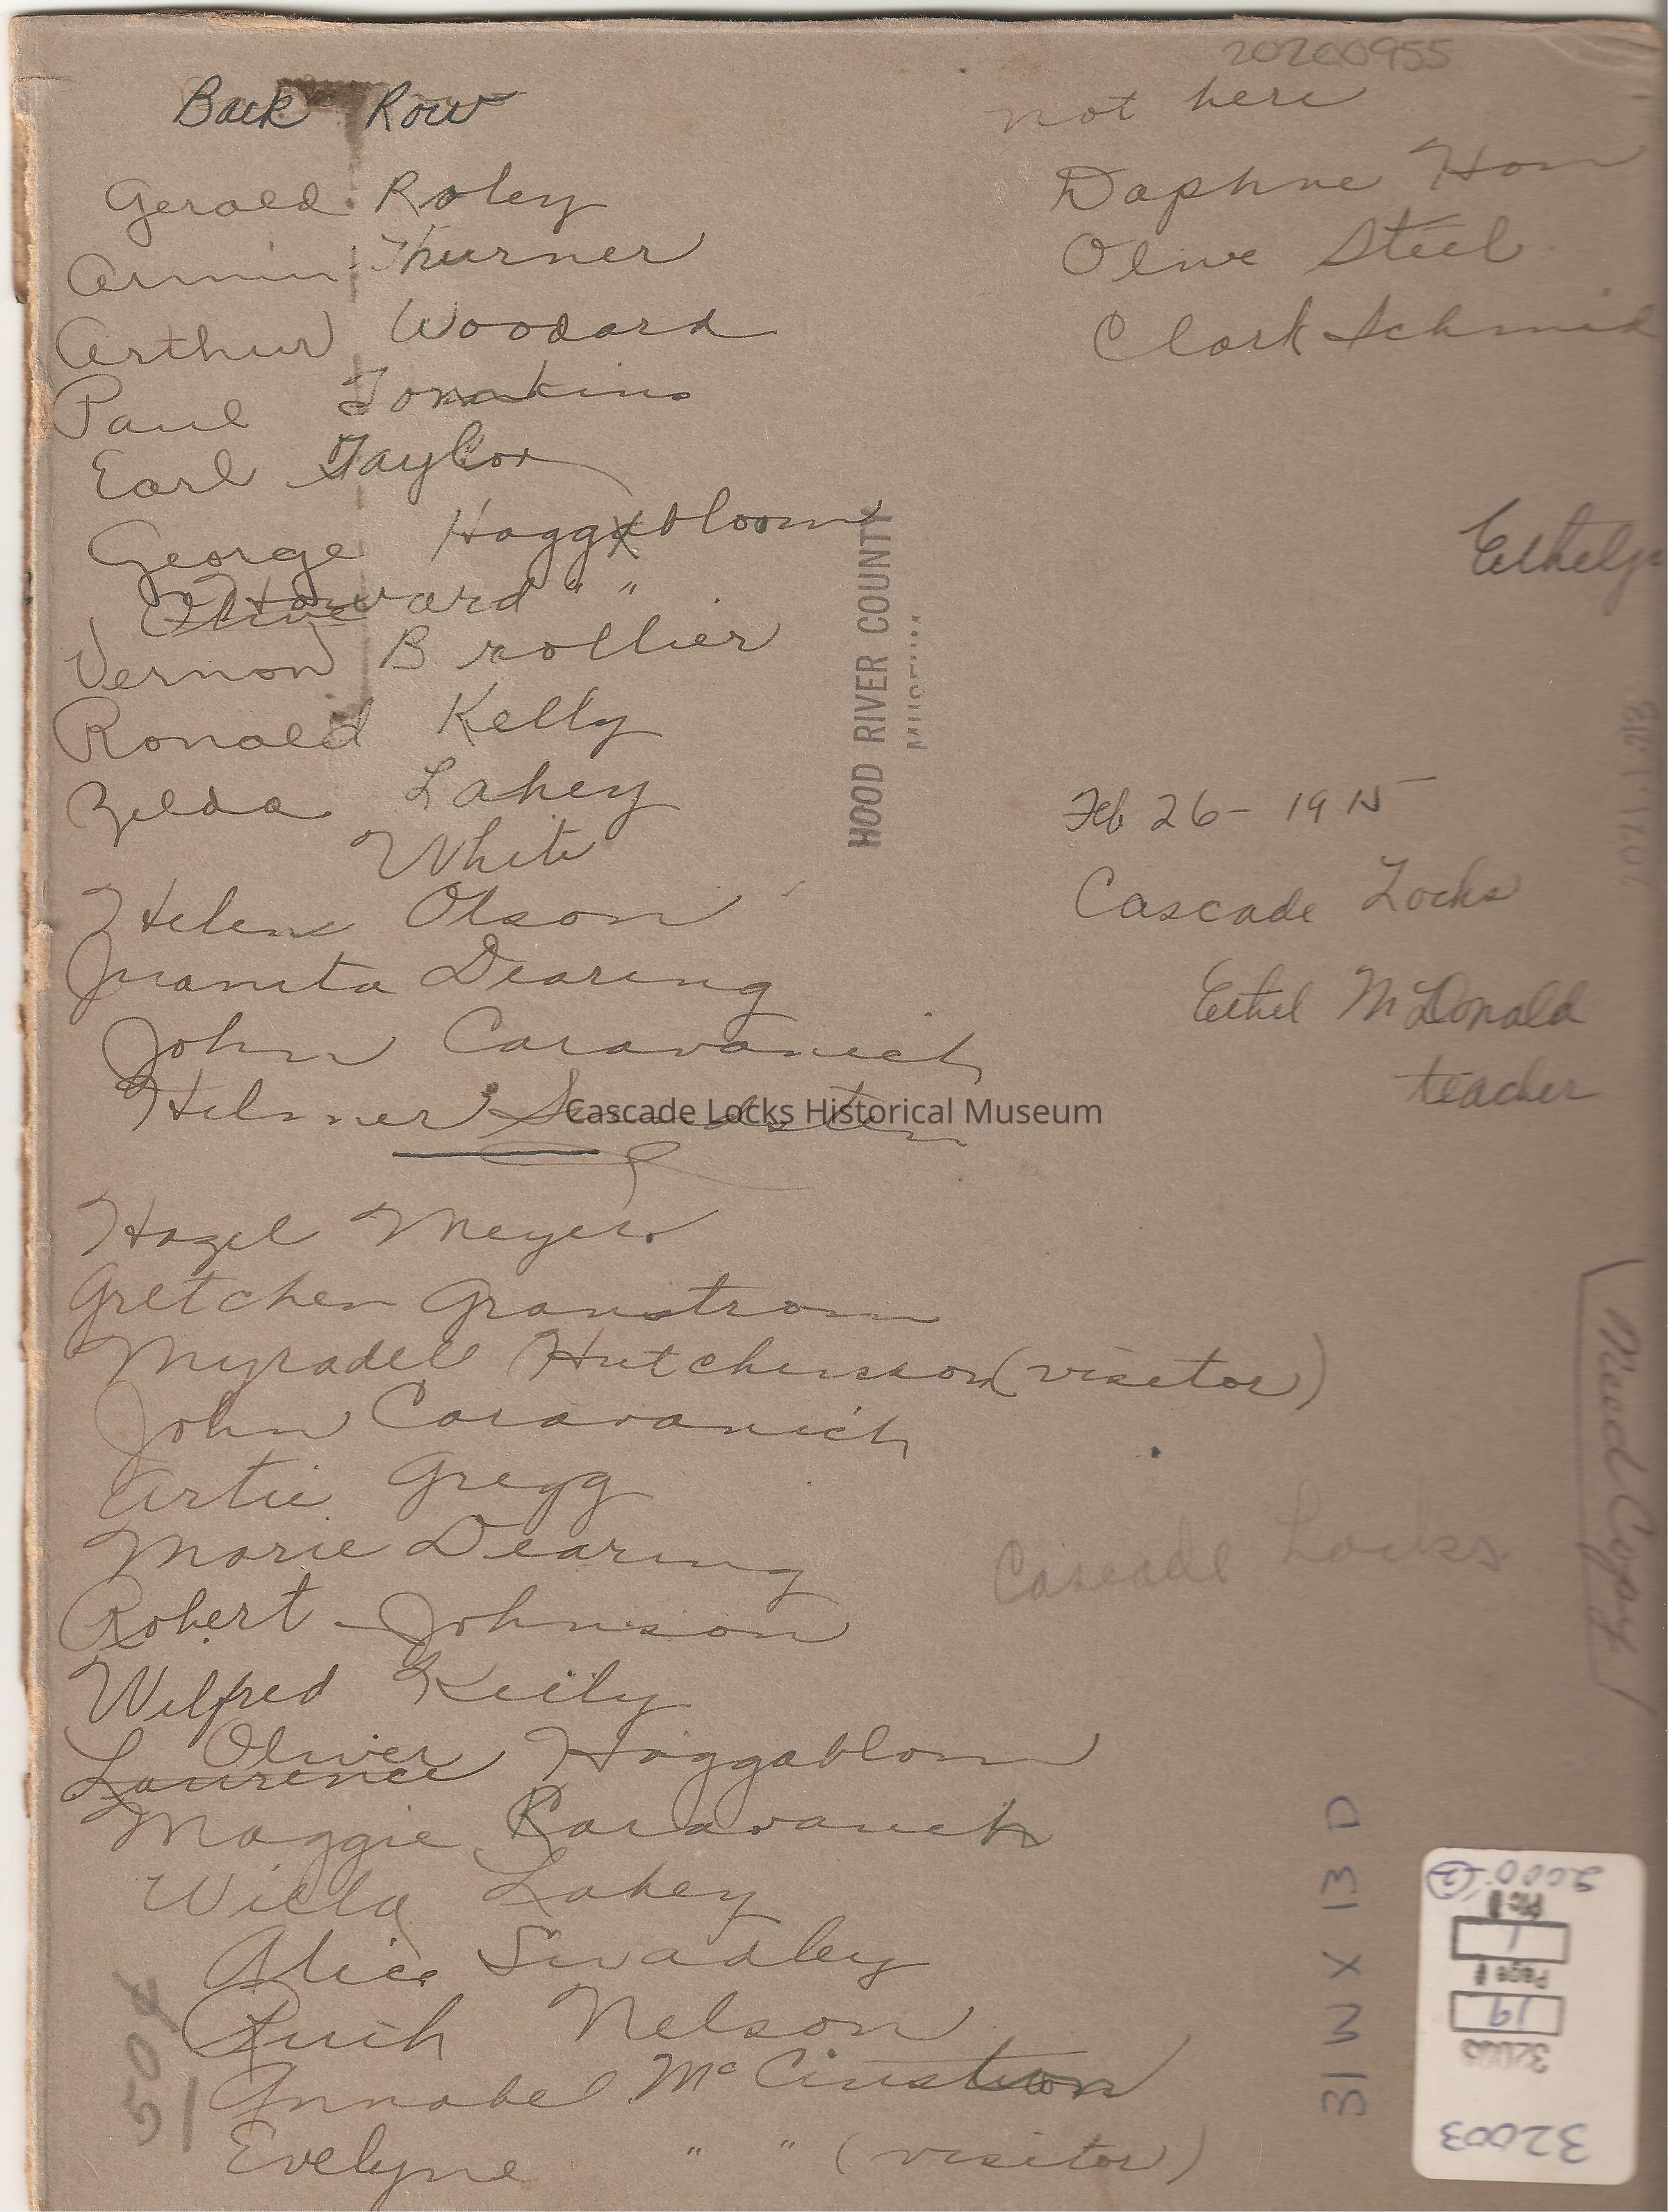 20200955
Back Row
Gerald Roley
Armin Thurner
Arthur Woodard
Paul Tomkins
Earl Taylor
George Haggabloom
Howard " "
Vernon Brollier
Ronald Kelly
Zelda Lahey
White
Helen Olson
Juanita Dearing
John Caravanich
Hilmer
Hazel Meyer
Gretchen Granstrom
Myradell Hutchinson (visitor)
John Caravanich
Artie Gregg
Marie Dearing
Robert Johnson
Wilfred Keily
Oliver Haggablom
Laurence
Maggie Karavanich
Willa Lahey
Alice Swadley
Ruth Nelson
Annabel
Evelyne " " (visitor)
50¢
not here
Daphne Hon
Olive Steel
Clark Schmid
HOOD RIVER COUNTY
Feb 26 - 1915
Cascade Locks
Ethel McDonald
teacher
Cascade Locks Historical Museum
Cascade Locks
Need Copy
31W X 13D
Pic #
1
Page #
19
32003
32003